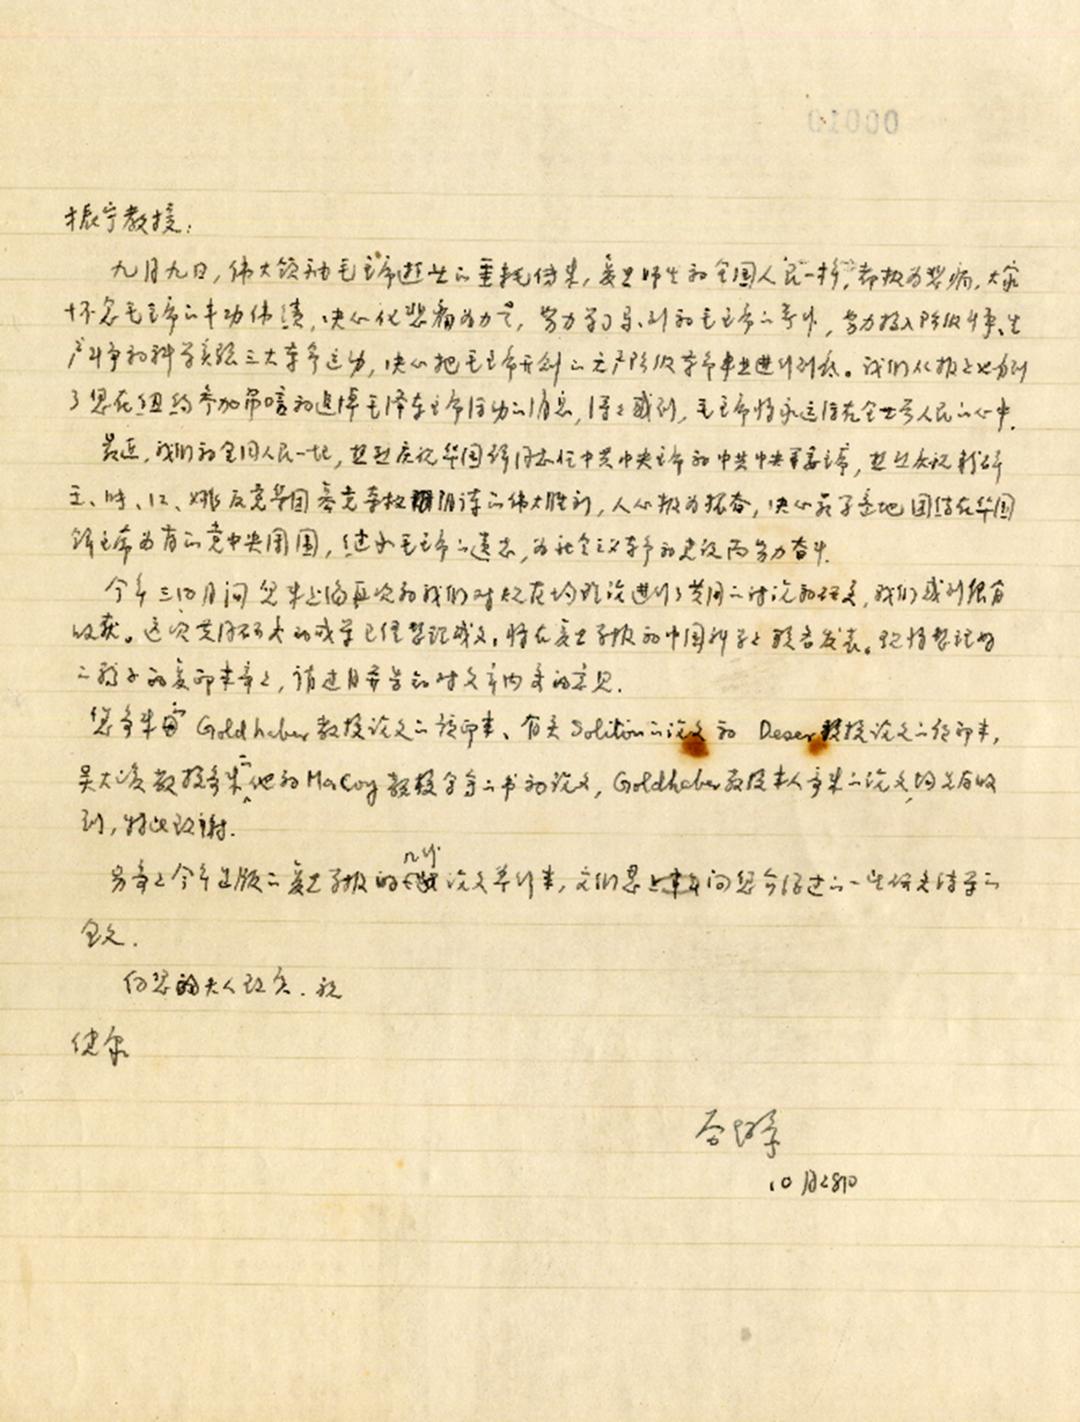 00010
振宁教授：
九月九日，伟大领袖毛主席逝世的噩耗传来，复旦师生和全国人民一样，都极为悲痛，大家
怀念毛主席的丰功伟绩，决心化悲痛为力量，努力学习马、列和毛主席的著作，努力投入阶级斗争、生
产斗争和科学实验三大革命运动，决心把毛主席开创的无产阶级革命事业进行到底。我们从报上也看到
了您在纽约参加吊唁和追悼毛泽东主席活动的消息，感到，毛主席将永远活在全世界人民的心中．
最近，我们和全国人民一起，热烈庆祝华国锋同志任中共中央主席和中共中央军委主席，热烈庆祝粉碎
王、张、江、姚反党集团篡党夺权阴谋的伟大胜利，人心极为振奋，决心更紧密地团结在华国
锋主席为首的党中央周围，继承毛主席的遗志，为社会主义革命和建设而努力奋斗．
今年三四月间您来上海再次和我们对规范场理论进行了共同的讨论和研究，我们感到很有
收获。这次共同研究的成果已经整理成文，将在复旦学报和中国科学上发表。现将整理好
的稿子的复印本寄上，请过目并告知对文章内容的意见．
您寄来的 Goldhaber 教授论文的预印本、有关 Soliton 的论文和 Deser 教授论文的预印本，
吴大峻教授寄来的他和 MacCoy 教授等的书和论文，Goldhaber 教授本人寄来的论文均先后收
到，特此致谢．
另寄上今年出版的复旦学报的几份论文单行本，它们是上年间您介绍过的一些有关结果的
全文．
向您的夫人致意．祝
健康
谷超豪
10月28日